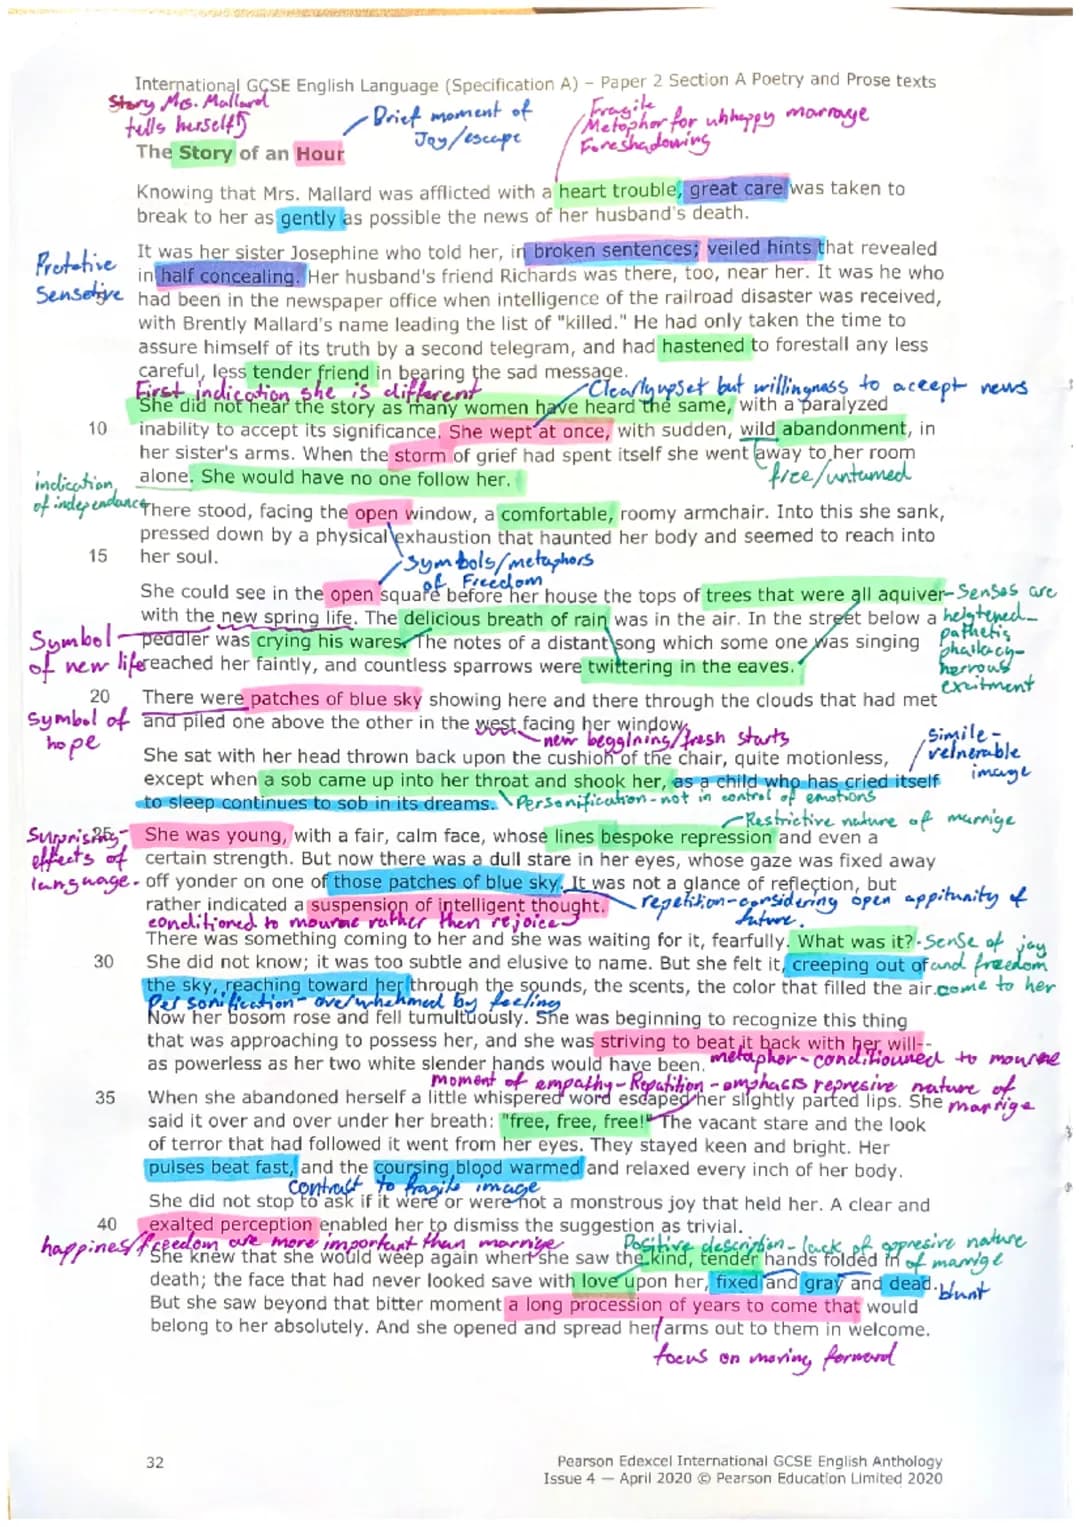 International GCSE English Language (Specification A) – Paper 2 Section A Poetry and Prose texts
Story Mrs. Mallard
tells herself
Brief moment of
Joy/escape
Fragile
Metophor for uhhappy marrage
Foreshadowing
The Story of an Hour
Knowing that Mrs. Mallard was afflicted with a heart trouble, great care was taken to
break to her as gently as possible the news of her husband's death.
Protative
Sensetive
It was her sister Josephine who told her, in broken sentences; veiled hints that revealed
in half concealing. Her husband's friend Richards was there, too, near her. It was he who
had been in the newspaper office when intelligence of the railroad disaster was received,
with Brently Mallard's name leading the list of "killed." He had only taken the time to
assure himself of its truth by a second telegram, and had hastened to forestall any less
careful, less tender friend in bearing the sad message.
First indication she is different
Clearly upset but willingness to accept news
She did not hear the story as many women have heard the same, with a paralyzed
10 inability to accept its significance. She wept at once, with sudden, wild abandonment, in
her sister's arms. When the storm of grief had spent itself she went away to her room
alone. She would have no one follow her.
free/untamed
indication
of independance
There stood, facing the open window, a comfortable, roomy armchair. Into this she sank,
pressed down by a physical exhaustion that haunted her body and seemed to reach into
15 her soul.
Symbols/metaphors
of Freedom
She could see in the open square before her house the tops of trees that were all aquiver
with the new spring life. The delicious breath of rain was in the air. In the street below a
peddler was crying his wares. The notes of a distant song which some one was singing
reached her faintly, and countless sparrows were twittering in the eaves.
Senses are
heightened-
pathetis
phallacy-
nervous
excitment
Symbol
of new life
20 There were patches of blue sky showing here and there through the clouds that had met
and piled one above the other in the west facing her window.
Symbol of
hope
new beggining/fresh starts
She sat with her head thrown back upon the cushion of the chair, quite motionless,
except when a sob came up into her throat and shook her, as a child who has cried itself
to sleep continues to sob in its dreams.
simile-
velnerable
image
Personification-not in control of emotions
Restrictive nature of marrige
25 She was young, with a fair, calm face, whose lines bespoke repression and even a
certain strength. But now there was a dull stare in her eyes, whose gaze was fixed away
off yonder on one of those patches of blue sky. It was not a glance of reflection, but
rather indicated a suspension of intelligent thought.
Surprising
effects of
language.
repetition-considering open appitunity of
future.
conditioned to mourne rather then rejoice
There was something coming to her and she was waiting for it, fearfully. What was it?
30 She did not know; it was too subtle and elusive to name. But she felt it, creeping out of
the sky, reaching toward her through the sounds, the scents, the color that filled the air.
Sense of joy
and freedom
come to her
Personification-overwhehmed by feeling
Now her bosom rose and fell tumultuously. She was beginning to recognize this thing
that was approaching to possess her, and she was striving to beat it back with her will--
as powerless as her two white slender hands would have been.
metaphor-conditiouned to mourne
moment of empathy-Repatition-emphacis represive nature of
marrige
35 When she abandoned herself a little whispered word escaped her slightly parted lips. She
said it over and over under her breath: "free, free, free!" The vacant stare and the look
of terror that had followed it went from her eyes. They stayed keen and bright. Her
pulses beat fast, and the coursing blood warmed and relaxed every inch of her body.
contrast to fragile image
She did not stop to ask if it were or were not a monstrous joy that held her. A clear and
40 exalted perception enabled her to dismiss the suggestion as trivial.
happiness/freedom are more important than marrige
Positive description-lack of oppresive nature
of marrige
She knew that she would weep again when she saw the kind, tender hands folded in
death; the face that had never looked save with love upon her, fixed and gray and dead.
blunt
But she saw beyond that bitter moment a long procession of years to come that would
belong to her absolutely. And she opened and spread her arms out to them in welcome.
focus on moving forward
32
Pearson Edexcel International GCSE English Anthology
Issue 4 — April 2020 © Pearson Education Limited 2020